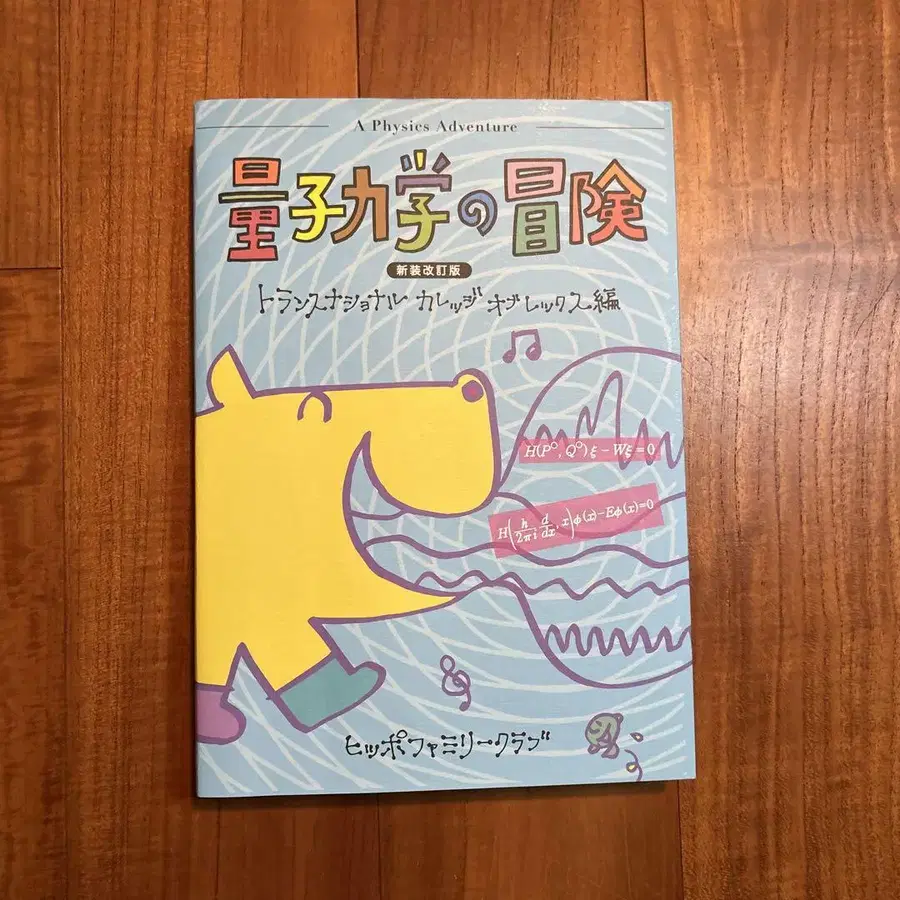 A Physics Adventure
量子力学の冒険
新装改訂版
トランスナショナル カレッジ オブ レックス編
H(P°, Q°)ξ − Wξ = 0
H(h/2πi d/dx, x)φ(x) − Eφ(x) = 0
ヒッポファミリークラブ